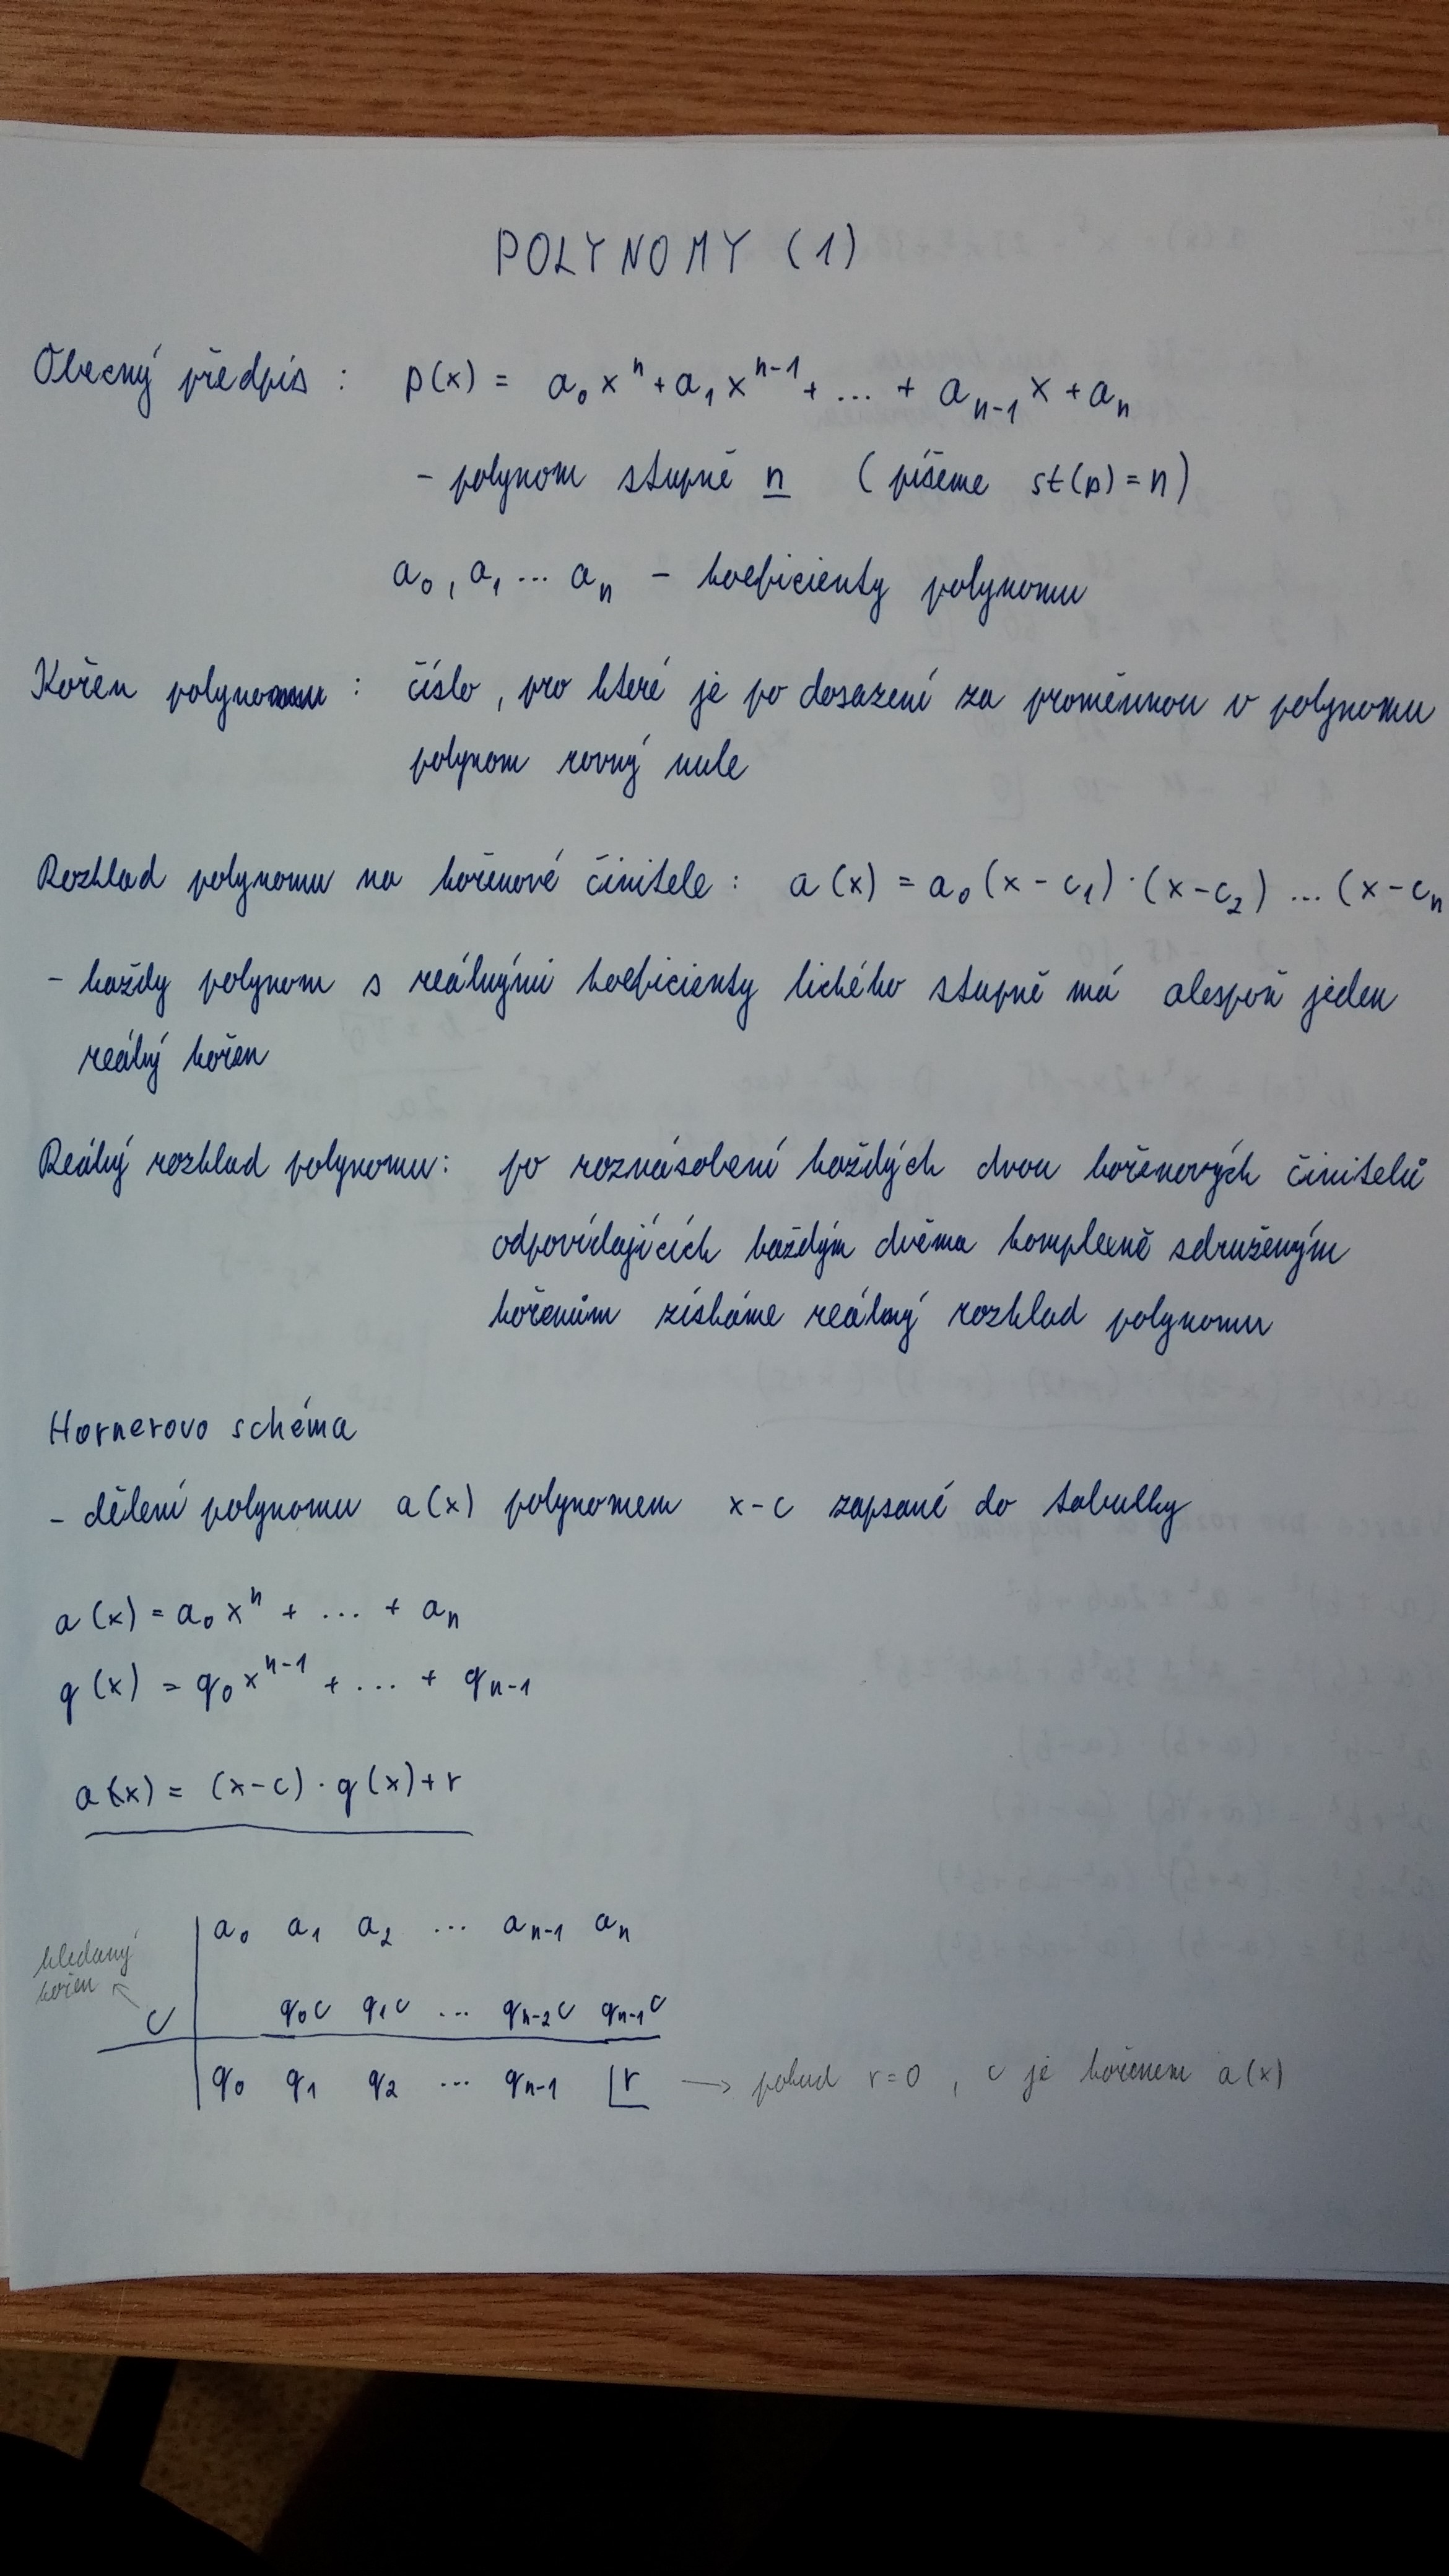 POLYNOMY (1)
Obecný předpis : p(x) = a₀xⁿ + a₁xⁿ⁻¹ + ... + aₙ₋₁x + aₙ
- polynom stupně n (píšeme st(p) = n)
a₀, a₁ ... aₙ - koeficienty polynomu
Kořen polynomu : číslo, pro které je po dosazení za proměnnou v polynomu
polynom rovný nule
Rozklad polynomu na kořenové činitele : a(x) = a₀(x - c₁) · (x - c₂) ... (x - cₙ
- každy polynom s reálnými koeficienty lichého stupně má alespoň jeden
reálný kořen
Reálný rozklad polynomu : po roznásobení každých dvou kořenových činitelů
odpovídajících každým dvěma komplexně sdruženým
kořenům získáme reálný rozklad polynomu
Hornerovo schéma
- dělení polynomu a(x) polynomem x-c zapsané do tabulky
a(x) = a₀xⁿ + ... + aₙ
q(x) = q₀xⁿ⁻¹ + ... + qₙ₋₁
a(x) = (x-c) · q(x) + r
a₀ a₁ a₂ ... aₙ₋₁ aₙ
hledaný
kořen
c q₀c q₁c ... qₙ₋₂c qₙ₋₁c
q₀ q₁ q₂ ... qₙ₋₁ r → pokud r=0, c je kořenem a(x)